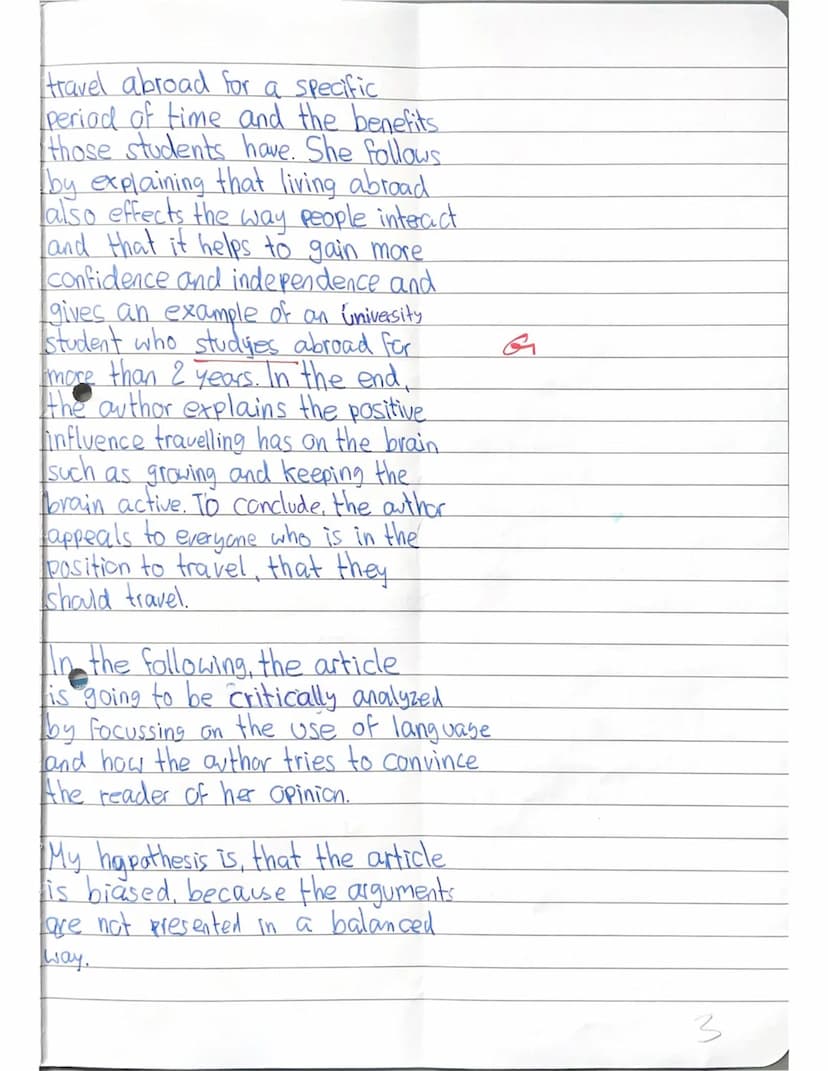 travel abroad for a specific
period of time and the benefits
those students have. She follows
by explaining that living abroad
also effects the way people interact
and that it helps to gain more
confidence and independence and
gives an example of an University
student who studyies abroad for
G
more than 2 years. In the end,
the author explains the positive
influence travelling has on the brain
such as growing and keeping the
brain active. To conclude, the author
appeals to everyone who is in the
position to travel, that they
should travel.
In the following, the article
is going to be critically analyzed
by focussing on the use of language
and how the author tries to convince
the reader of her opinion.
My hypothesis is, that the article
is biased, because the arguments
are not presented in a balanced
way.
3